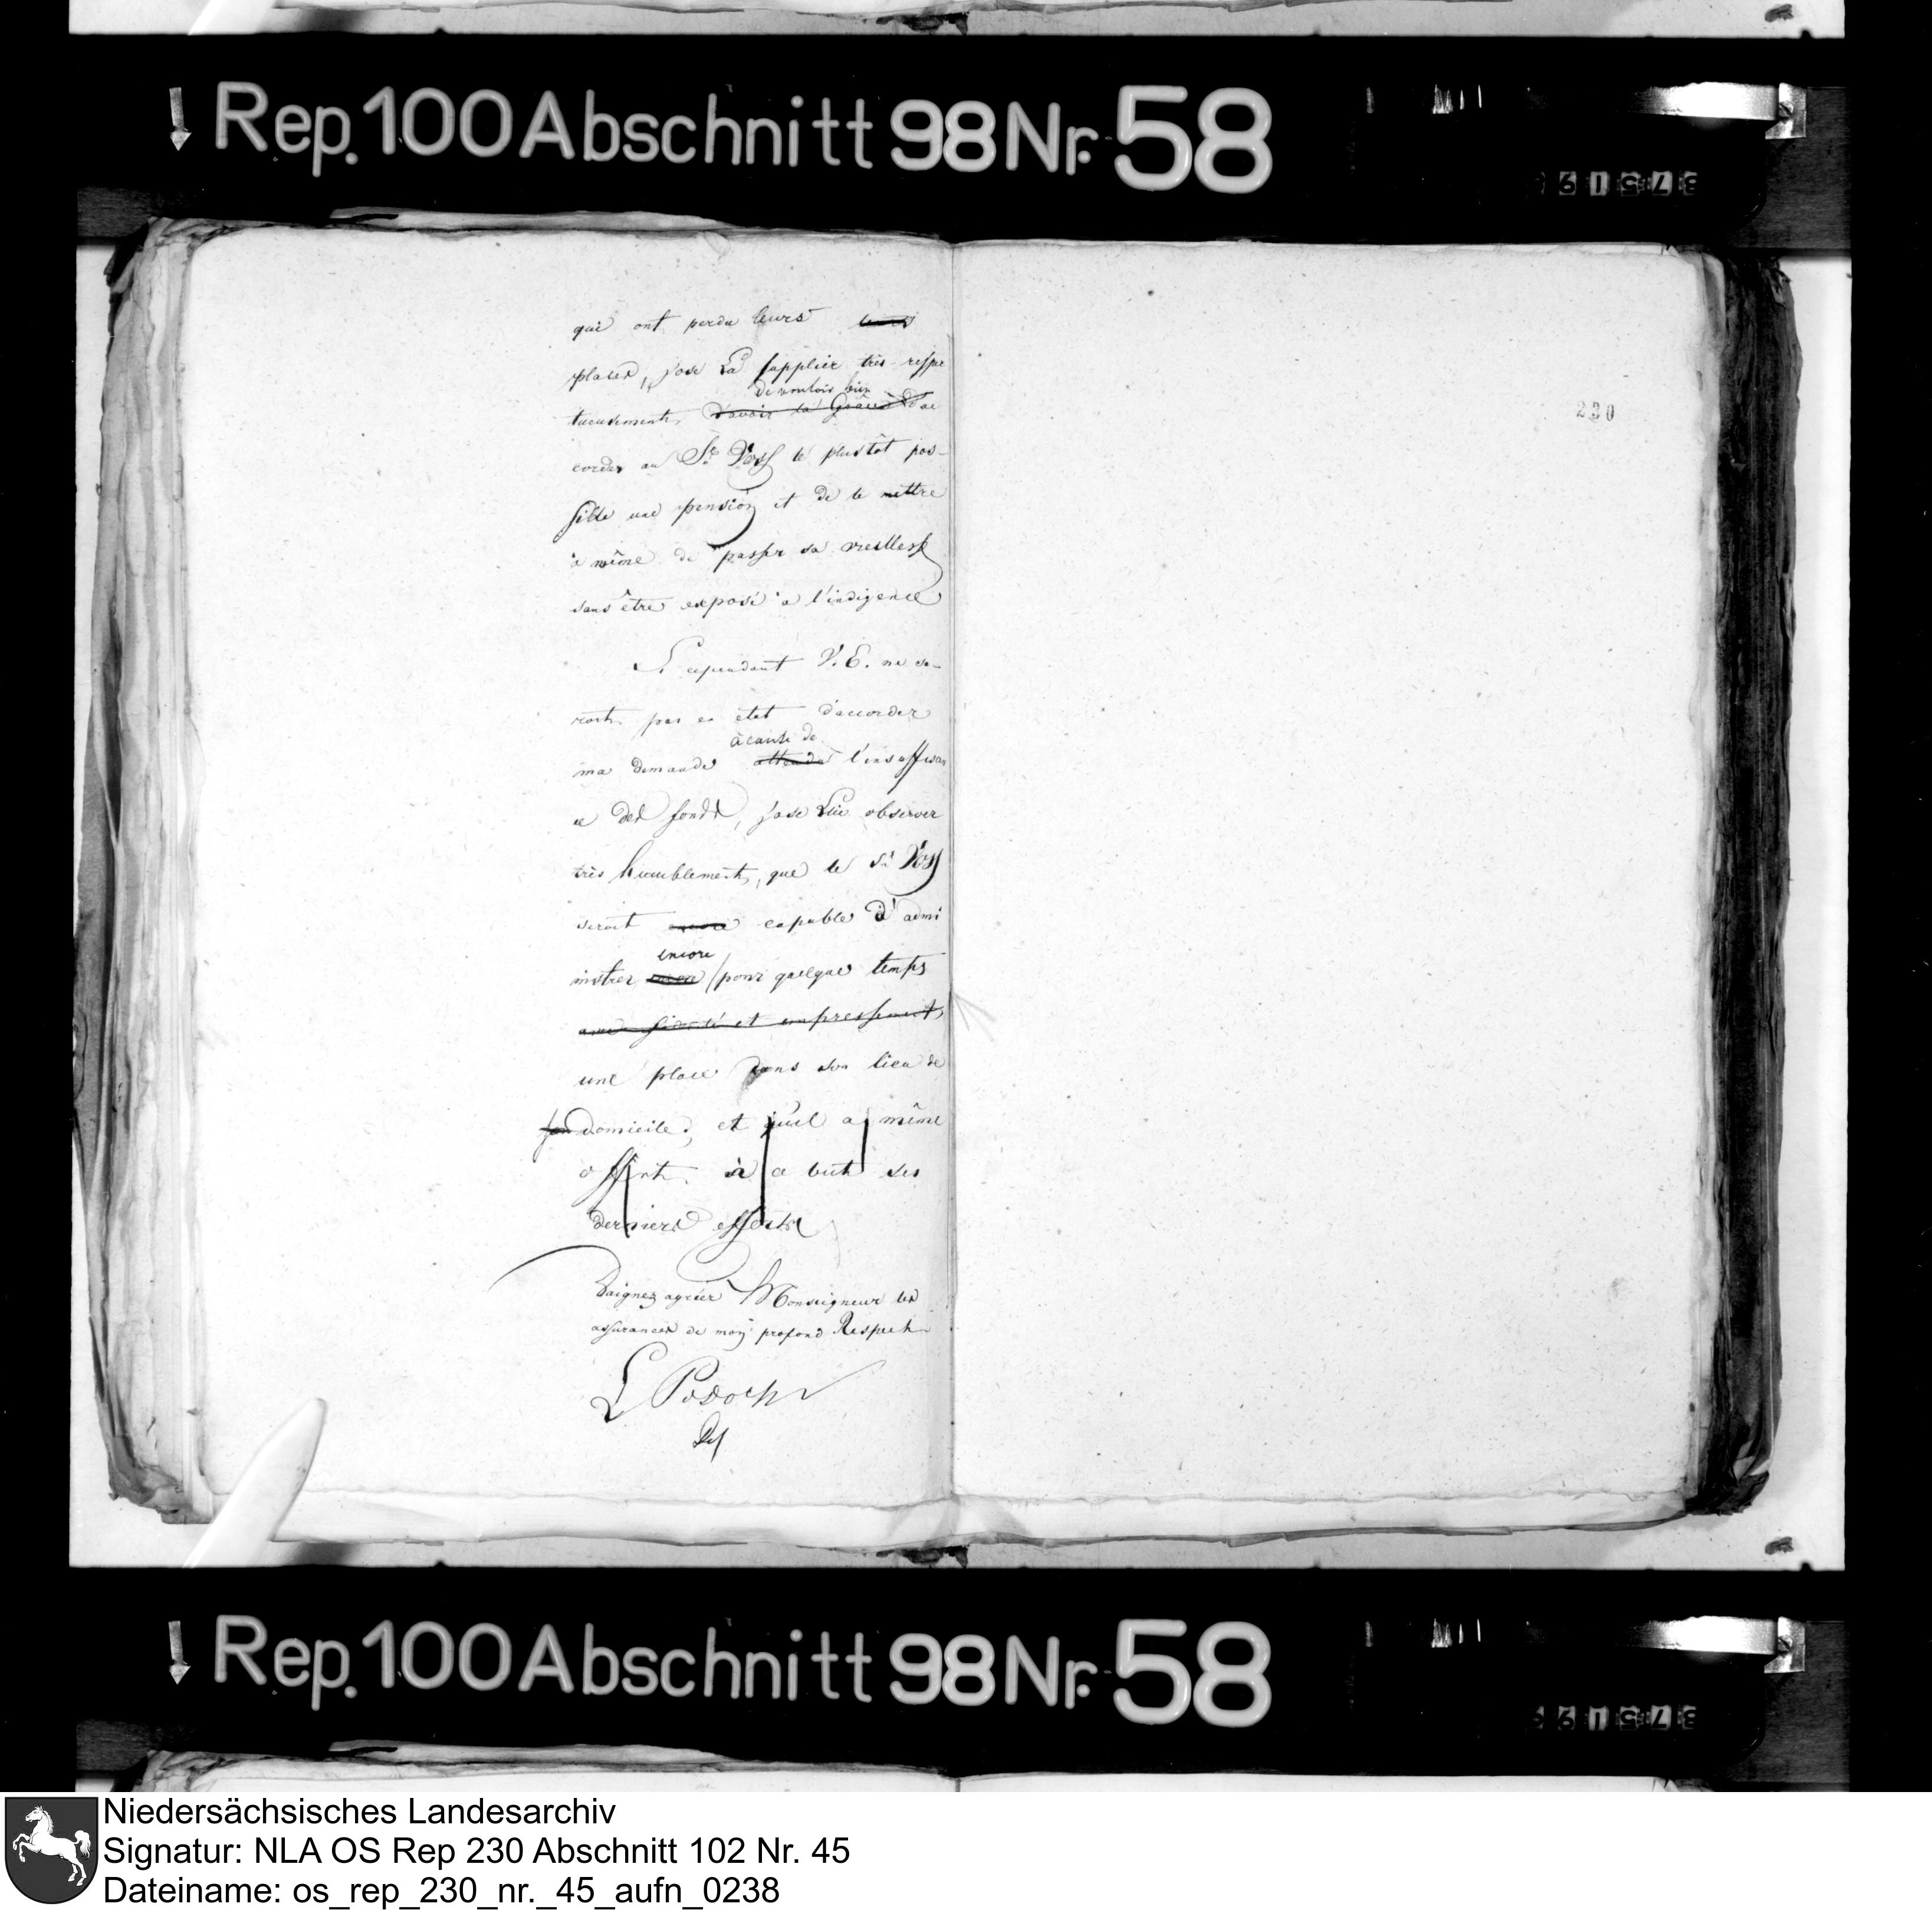 Rep. 100 Abschnitt 98 Nr. 58
37519
qui ont perdu leurs
places, j'ose La supplier très respec
de vouloir bien
tueusement, d'avoir la Grâce d'ac
corder au Sr. Voss le plustôt pos-
sible une pension et de le mettre
à même de passer sa vieillesse
sans être exposé à l'indigence
Si cependant V. E. ne se-
roit pas en état d'accorder
à cause de
ma demande attendu l'insuffisan
ce des fonds, j'ose Lui observer
très humblement, que le Sr. Voss
seroit encore capable d'admi
encore
nistrer pour quelque temps
avec fidélité et empressement,
une place dans son lieu de
son domicile, et qu'il a même
offert à ce but ses
derniers efforts
Daignez agréer Monseigneur les
assurances de mon profond Respect
230
Rep. 100 Abschnitt 98 Nr. 58
37519
Niedersächsisches Landesarchiv
Signatur: NLA OS Rep 230 Abschnitt 102 Nr. 45
Dateiname: os_rep_230_nr._45_aufn_0238